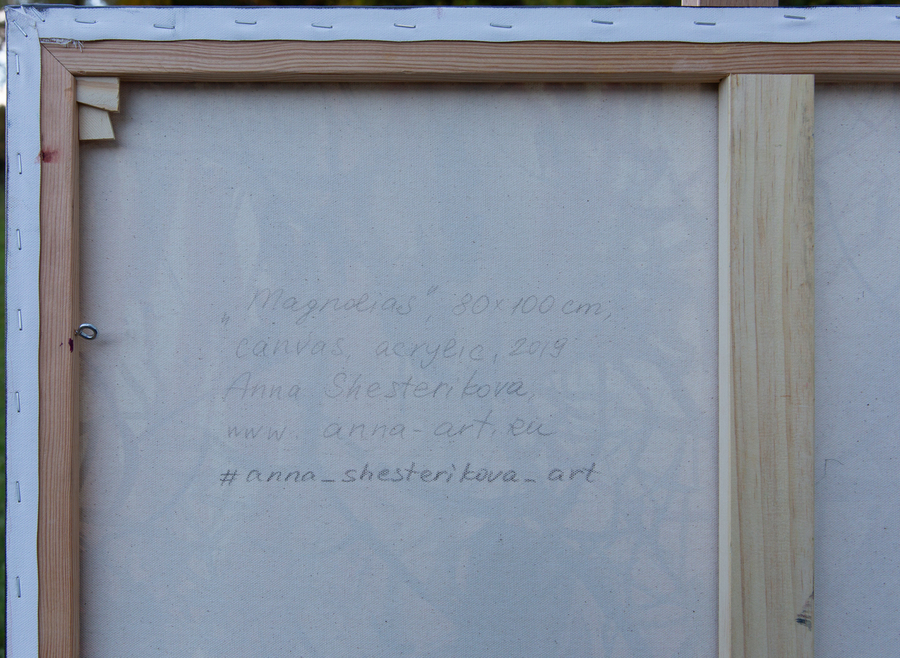 „Magnolias”, 80×100 cm,
canvas, acrylic, 2019
Anna Shesterikova,
www. anna-art.eu
#anna_shesterikova_art